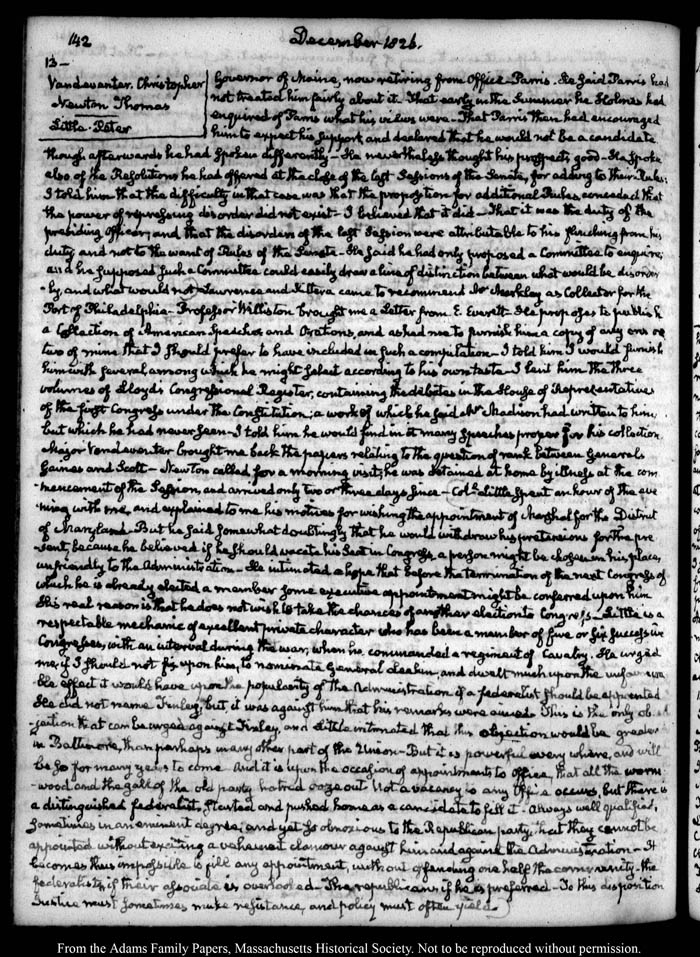 142
December 1826.
13-
Vandeventer. Christopher
Newton Thomas
Little Peter
Governor of Maine, now retiring from Office - Parris. He said Parris had
not treated him fairly about it. That early in the Summer he Holmes had
enquired of Parris what his views were - That Parris then had encouraged
him to expect his support, and declared that he would not be a candidate
though afterwards he had spoken differently - He nevertheless thought his prospects good - He spoke
also of the Resolutions he had offered at the close of the last Sessions of the Senate, for adding to their Rules.
I told him that the difficulty in that case was that the proposition for additional Rules conceded that
the power of repressing disorder did not exist - I believed that it did - That it was the duty of the
presiding Officer, and that the disorders of the last Session were attributable to his flinching from his
duty and not to the want of Rules of the Senate - He said he had only proposed a Committee to enquire,
and he supposed such a Committee could easily draw a line of distinction between what would be disorder
-ly, and what would not - Lawrence and Kittera came to recommend Mr Markley as Collector for the
Port of Philadelphia - Professor Williston brought me a Letter from E. Everett - He proposes to publish
a Collection of American Speeches and Orations, and asked me to furnish him a copy of any one or
two of mine that I should prefer to have included in such a compilation - I told him I would furnish
him with several, among which he might select according to his own taste - I lent him the three
volumes of Lloyd's Congressional Register, containing the debates in the House of Representatives
of the first Congress under the Constitution; a work of which he said Mr Madison had written to him,
but which he had never seen - I told him he would find in it many Speeches proper for his collection.
Major Vandeventer brought me back the papers relating to the question of rank between Generals
Gaines and Scott - Newton called for a morning visit; he was detained at home by illness at the com
-mencement of the Session, and arrived only two or three days since - Coll. Little spent an hour of the eve
-ning with me, and explained to me his motives for wishing the appointment of Marshal for the District
of Maryland - But he said somewhat doubtingly that he would withdraw his pretensions for the pre
-sent, because he believed if he should vacate his Seat in Congress, a person might be chosen in his place,
unfriendly to the Administration - He intimated a hope that before the termination of the next Congress of
which he is already elected a member some executive appointment might be conferred upon him
His real reason is that he does not wish to take the chances of another election to Congress - Little is a
respectable mechanic of excellent private character who has been a member of five or six successive
Congresses, with an interval during the war, when he commanded a regiment of Cavalry. He urged
me, if I should not fix upon him, to nominate General Leakin, and dwelt much upon the unfavoura
-ble effect it would have upon the popularity of the Administration if a federalist should be appointed
He did not name Finley, but it was against him that his remarks were aimed. This is the only ob
-jection that can be urged against Finley, and Little intimated that this objection would be greater
in Baltimore, than perhaps in any other part of the Union - But it is powerful every where, and will
be so for many years to come. And it is upon the occasion of appointments to office, that all the worm
-wood and the gall of the old party hatred ooze out. Not a vacancy to any Office occurs, but there is
a distinguished federalist, started and pushed home as a candidate to fill it - always well qualified,
sometimes in an eminent degree; and yet so obnoxious to the Republican party, that they cannot be
appointed without exciting a vehement clamour against him and against the Administration - It
becomes thus impossible to fill any appointment, without offending one half the community - the
federalists, if their associate is overlooked - The republicans if he is preferred - To this disposition
Justice must sometimes make resistance, and policy must often yield.
From the Adams Family Papers, Massachusetts Historical Society. Not to be reproduced without permission.